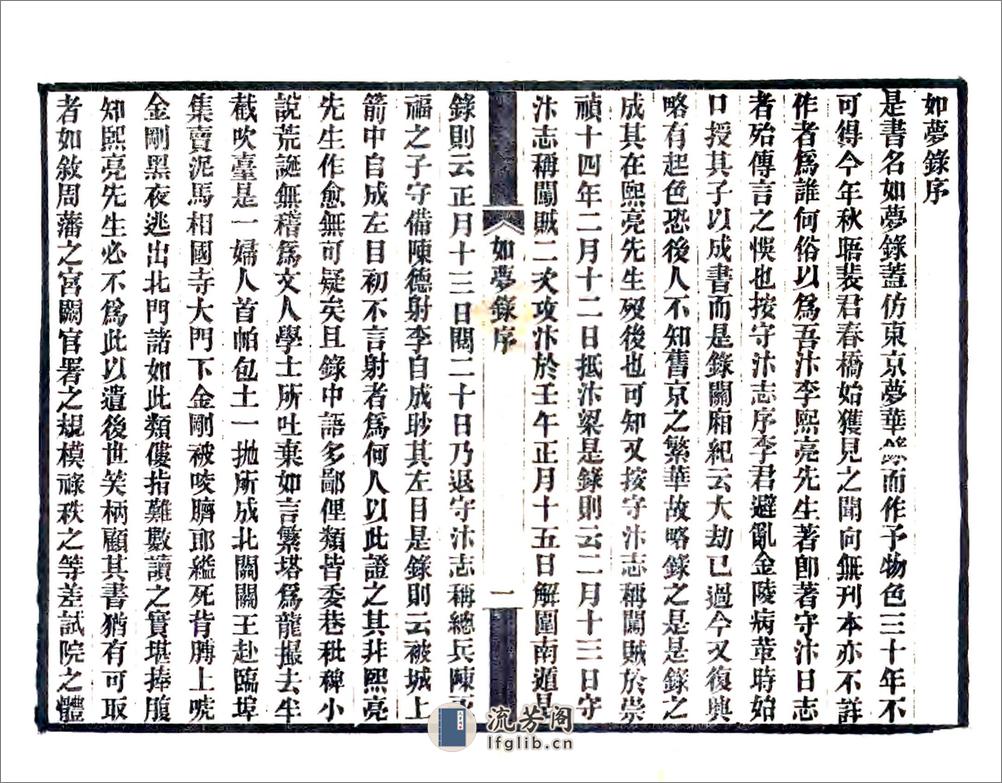 如夢錄序
是書名如夢錄蓋仿東京夢華錄而作予物色三十年不
可得今年秋晤裴君春橋始獲見之聞向無刊本亦不詳
作者爲誰何俗以爲吾汴李熙亮先生著卽著守汴日志
者殆傳言之悞也按守汴志序李君避亂金陵病革時始
口授其子以成書而是錄關廂紀云大劫已過今又復興
略有起色恐後人不知舊京之繁華故略錄之是是錄之
成其在熙亮先生歿後也可知又按守汴志稱闖賊於崇
禎十四年二月十二日抵汴梁是錄則云二月十三日守
汴志稱闖賊二次攻汴於壬午正月十五日解圍南遁是
如夢錄序
一
錄則云正月十三日開二十日乃退守汴志稱總兵陳永
福之子守備陳德射李自成眇其左目是錄則云被城上
箭中自成左目初不言射者爲何人以此證之其非熙亮
先生作愈無可疑矣且錄中語多鄙俚類皆委巷秕稗小
說荒誕無稽爲文人學士所吐棄如言繁塔爲龍撮去半
截吹臺是一婦人首帕包土一抛所成北關關王赴臨埠
集賣泥馬相國寺大門下金剛被唛臍郎艦死背膊上唬
金剛黑夜逃出北門諸如此類僂指難數讀之實堪捧腹
知熙亮先生必不爲此以遺後世笑柄顧其書猶有可取
者如敘周藩之宮闕官署之規模祿秩之等差試院之體
流芳阁
lfglib.cn